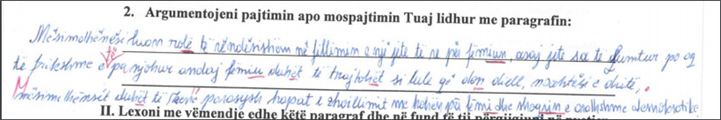 2. Argumentojeni pajtimin apo mospajtimin Tuaj lidhur me paragrafin:
Mësimdhënësi luan rolë të rëndësishëm në fillimin e një jete të re për fëmiun, asaj jete sa të bumtur po aq
të frikshme e pa njohur andaj fëmiu duhët të trajtohët si lule që don diell, mbështësi e dritë,
Mësimedhënsët duhët të kenë parasysh hapat e zhvillimit me kohën për fëmi dhe shoqnin e ardhshme demokratike
II. Lexoni me vëmendje edhe këtë paragraf dhe në fund të tij përgjigjuni në pyetjen